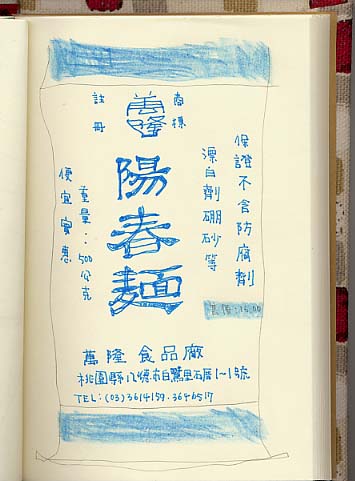 保證不含防腐劑
漂白劑硼砂等
商標
萬隆
註冊
陽春麵
重量：500公克
便宜實惠
萬隆食品廠
桃園縣八德市白鷺里石厝1~1號
TEL：(03)3614159．3646517